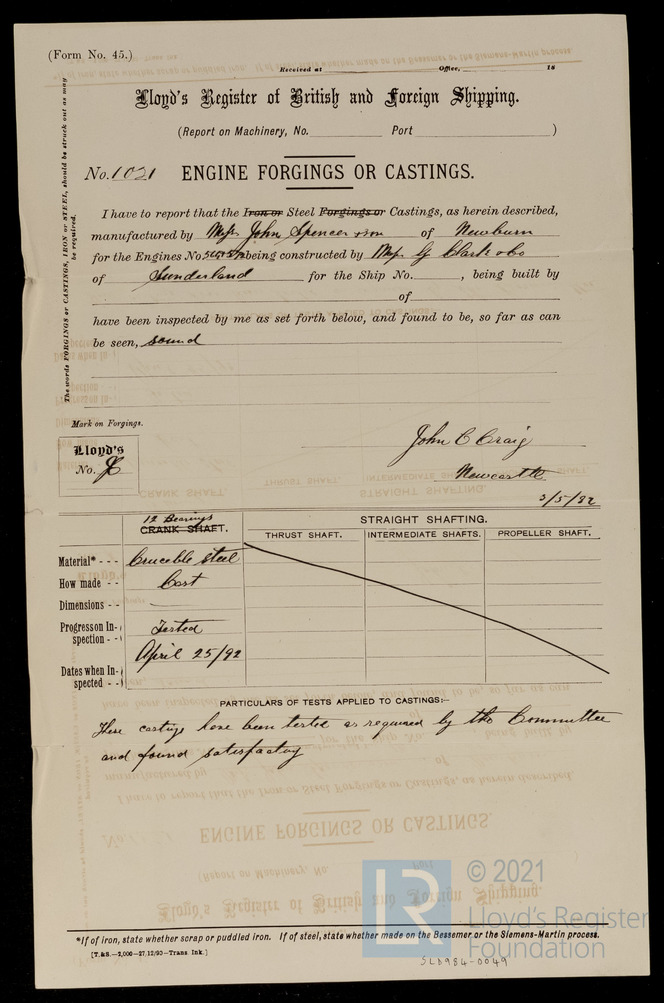 (Form No. 45.)
Received at Office, 18
Lloyd's Register of British and Foreign Shipping.
(Report on Machinery, No. Port )
No. 1021 ENGINE FORGINGS OR CASTINGS.
The words FORGINGS or CASTINGS, IRON or STEEL, should be struck out as may
be required.
I have to report that the Iron or Steel Forgings or Castings, as herein described,
manufactured by Messrs John Spencer & son of Newburn
for the Engines No. being constructed by Messrs G Clark & Co
of Sunderland for the Ship No. , being built by
of
have been inspected by me as set forth below, and found to be, so far as can
be seen, sound
Mark on Forgings.
Lloyd's
No.
John C Craig
Newcastle
3/5/92
12 Bearings
CRANK SHAFT.
STRAIGHT SHAFTING.
THRUST SHAFT. INTERMEDIATE SHAFTS. PROPELLER SHAFT.
Material* - - - Crucible steel
How made - - Cast
Dimensions - -
Progress on In-
spection - - Tested
April 25/92
Dates when In-
spected - -
PARTICULARS OF TESTS APPLIED TO CASTINGS:—
These castings have been tested as required by the Committee
and found satisfactory
© 2021
LR
Lloyd's Register
Foundation
*If of iron, state whether scrap or puddled iron. If of steel, state whether made on the Bessemer or the Siemens-Martin process.
[T.&S.—2,000—27/12/90—Trans Ink.]
SLD984-0049